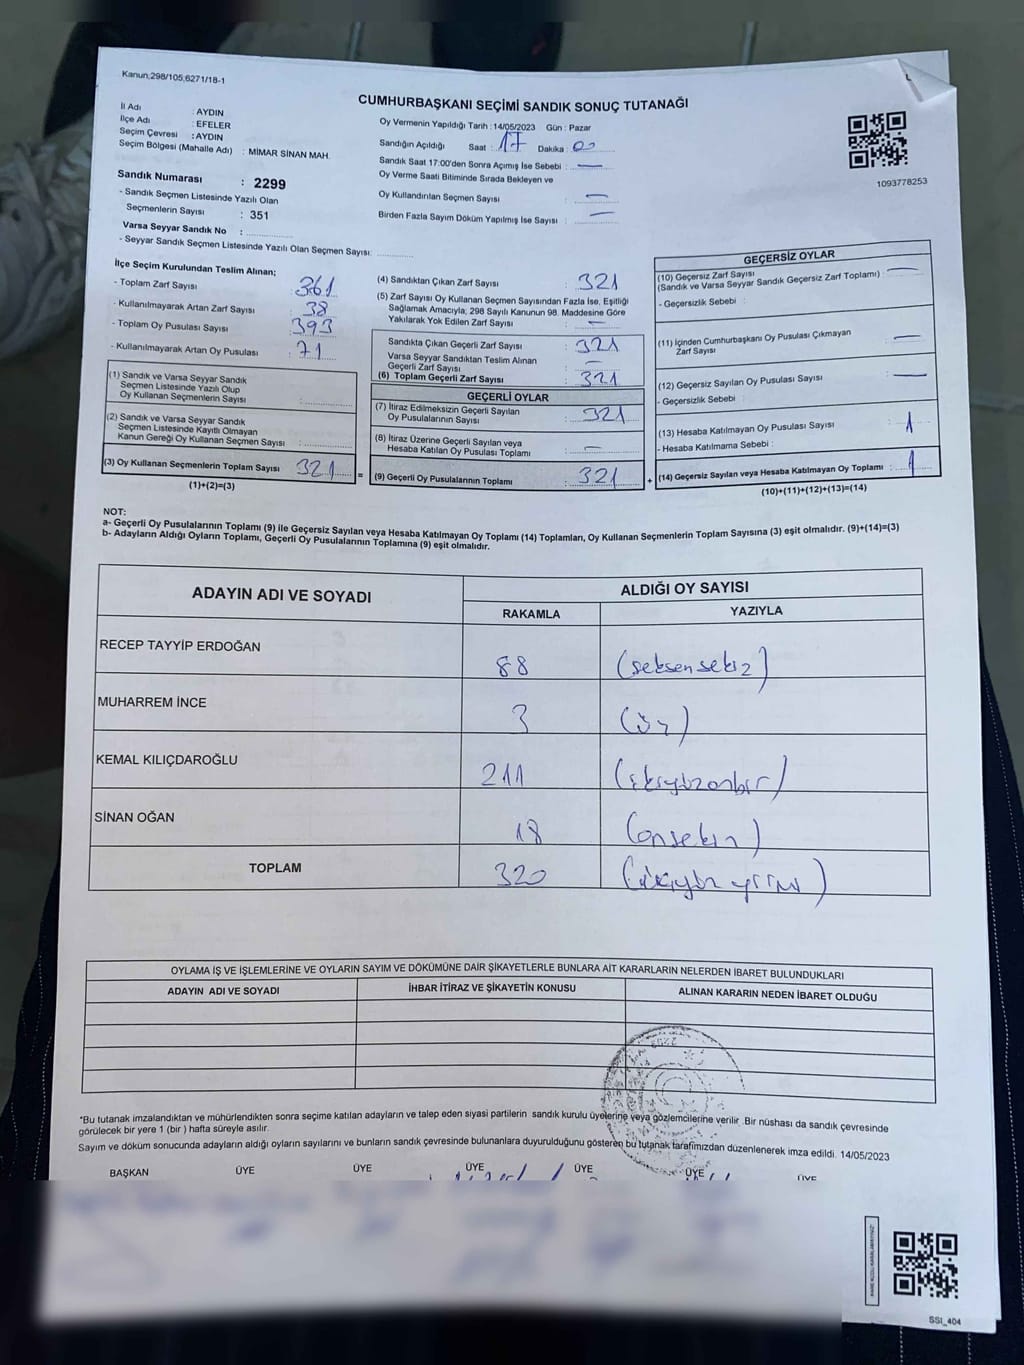 Kanun;298/105;6271/18-1
CUMHURBAŞKANI SEÇİMİ SANDIK SONUÇ TUTANAĞI
İl Adı : AYDIN
İlçe Adı : EFELER
Seçim Çevresi : AYDIN
Seçim Bölgesi (Mahalle Adı) : MİMAR SİNAN MAH.
Sandık Numarası : 2299
- Sandık Seçmen Listesinde Yazılı Olan
Seçmenlerin Sayısı : 351
Varsa Seyyar Sandık No :
- Seyyar Sandık Seçmen Listesinde Yazılı Olan Seçmen Sayısı:
Oy Vermenin Yapıldığı Tarih : 14/05/2023 Gün : Pazar
Sandığın Açıldığı Saat : 17 Dakika : 00
Sandık Saat 17:00'den Sonra Açımış İse Sebebi : —
Oy Verme Saati Bitiminde Sırada Bekleyen ve
Oy Kullandırılan Seçmen Sayısı : —
Birden Fazla Sayım Döküm Yapılmış İse Sayısı : —
1093778253
İlçe Seçim Kurulundan Teslim Alınan;
- Toplam Zarf Sayısı : 361
- Kullanılmayarak Artan Zarf Sayısı : 38
- Toplam Oy Pusulası Sayısı : 393
- Kullanılmayarak Artan Oy Pusulası : 71
(1) Sandık ve Varsa Seyyar Sandık
Seçmen Listesinde Yazılı Olup
Oy Kullanan Seçmenlerin Sayısı :
(2) Sandık ve Varsa Seyyar Sandık
Seçmen Listesinde Kayıtlı Olmayan
Kanun Gereği Oy Kullanan Seçmen Sayısı :
(3) Oy Kullanan Seçmenlerin Toplam Sayısı : 321 =
(1)+(2)=(3)
(4) Sandıktan Çıkan Zarf Sayısı : 321
(5) Zarf Sayısı Oy Kullanan Seçmen Sayısından Fazla İse, Eşitliği
Sağlamak Amacıyla; 298 Sayılı Kanunun 98. Maddesine Göre
Yakılarak Yok Edilen Zarf Sayısı : —
Sandıkta Çıkan Geçerli Zarf Sayısı : 321
Varsa Seyyar Sandıktan Teslim Alınan
Geçerli Zarf Sayısı : —
(6) Toplam Geçerli Zarf Sayısı : 321
GEÇERLİ OYLAR
(7) İtiraz Edilmeksizin Geçerli Sayılan
Oy Pusulalarının Sayısı : 321
(8) İtiraz Üzerine Geçerli Sayılan veya
Hesaba Katılan Oy Pusulası Toplamı : —
(9) Geçerli Oy Pusulalarının Toplamı : 321 +
GEÇERSİZ OYLAR
(10) Geçersiz Zarf Sayısı
(Sandık ve Varsa Seyyar Sandık Geçersiz Zarf Toplamı) : —
- Geçersizlik Sebebi :
(11) İçinden Cumhurbaşkanı Oy Pusulası Çıkmayan
Zarf Sayısı : —
(12) Geçersiz Sayılan Oy Pusulası Sayısı : —
- Geçersizlik Sebebi :
(13) Hesaba Katılmayan Oy Pusulası Sayısı : 1
- Hesaba Katılmama Sebebi :
(14) Geçersiz Sayılan veya Hesaba Katılmayan Oy Toplamı : 1
(10)+(11)+(12)+(13)=(14)
NOT:
a- Geçerli Oy Pusulalarının Toplamı (9) ile Geçersiz Sayılan veya Hesaba Katılmayan Oy Toplamı (14) Toplamları, Oy Kullanan Seçmenlerin Toplam Sayısına (3) eşit olmalıdır. (9)+(14)=(3)
b- Adayların Aldığı Oyların Toplamı, Geçerli Oy Pusulalarının Toplamına (9) eşit olmalıdır.
ADAYIN ADI VE SOYADI
ALDIĞI OY SAYISI
RAKAMLA YAZIYLA
RECEP TAYYİP ERDOĞAN 88 (seksensekiz)
MUHARREM İNCE 3 (üç)
KEMAL KILIÇDAROĞLU 211 (ikiyüzonbir)
SİNAN OĞAN 18 (onsekiz)
TOPLAM 320
OYLAMA İŞ VE İŞLEMLERİNE VE OYLARIN SAYIM VE DÖKÜMÜNE DAİR ŞİKAYETLERLE BUNLARA AİT KARARLARIN NELERDEN İBARET BULUNDUKLARI
ADAYIN ADI VE SOYADI İHBAR İTİRAZ VE ŞİKAYETİN KONUSU ALINAN KARARIN NEDEN İBARET OLDUĞU
*Bu tutanak imzalandıktan ve mühürlendikten sonra seçime katılan adayların ve talep eden siyasi partilerin sandık kurulu üyelerine veya gözlemcilerine verilir .Bir nüshası da sandık çevresinde
görülecek bir yere 1 (bir ) hafta süreyle asılır.
Sayım ve döküm sonucunda adayların aldığı oyların sayılarını ve bunların sandık çevresinde bulunanlara duyurulduğunu gösteren bu tutanak tarafımızdan düzenlenerek imza edildi. 14/05/2023
BAŞKAN ÜYE ÜYE ÜYE ÜYE ÜYE ÜYE
SSI_404